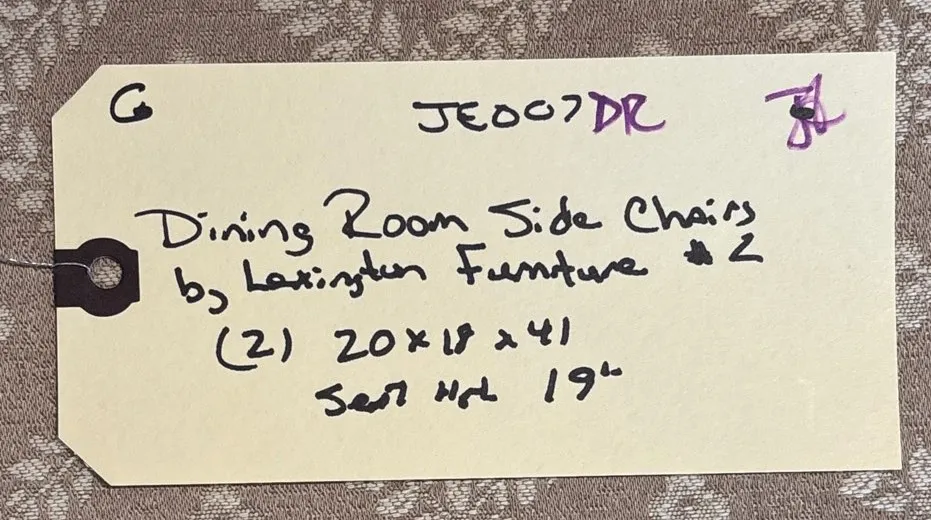 G JE007DR
Dining Room Side Chairs
by Lexington Furniture #2
(2) 20 x 18 x 41
Seat Hgt 19"